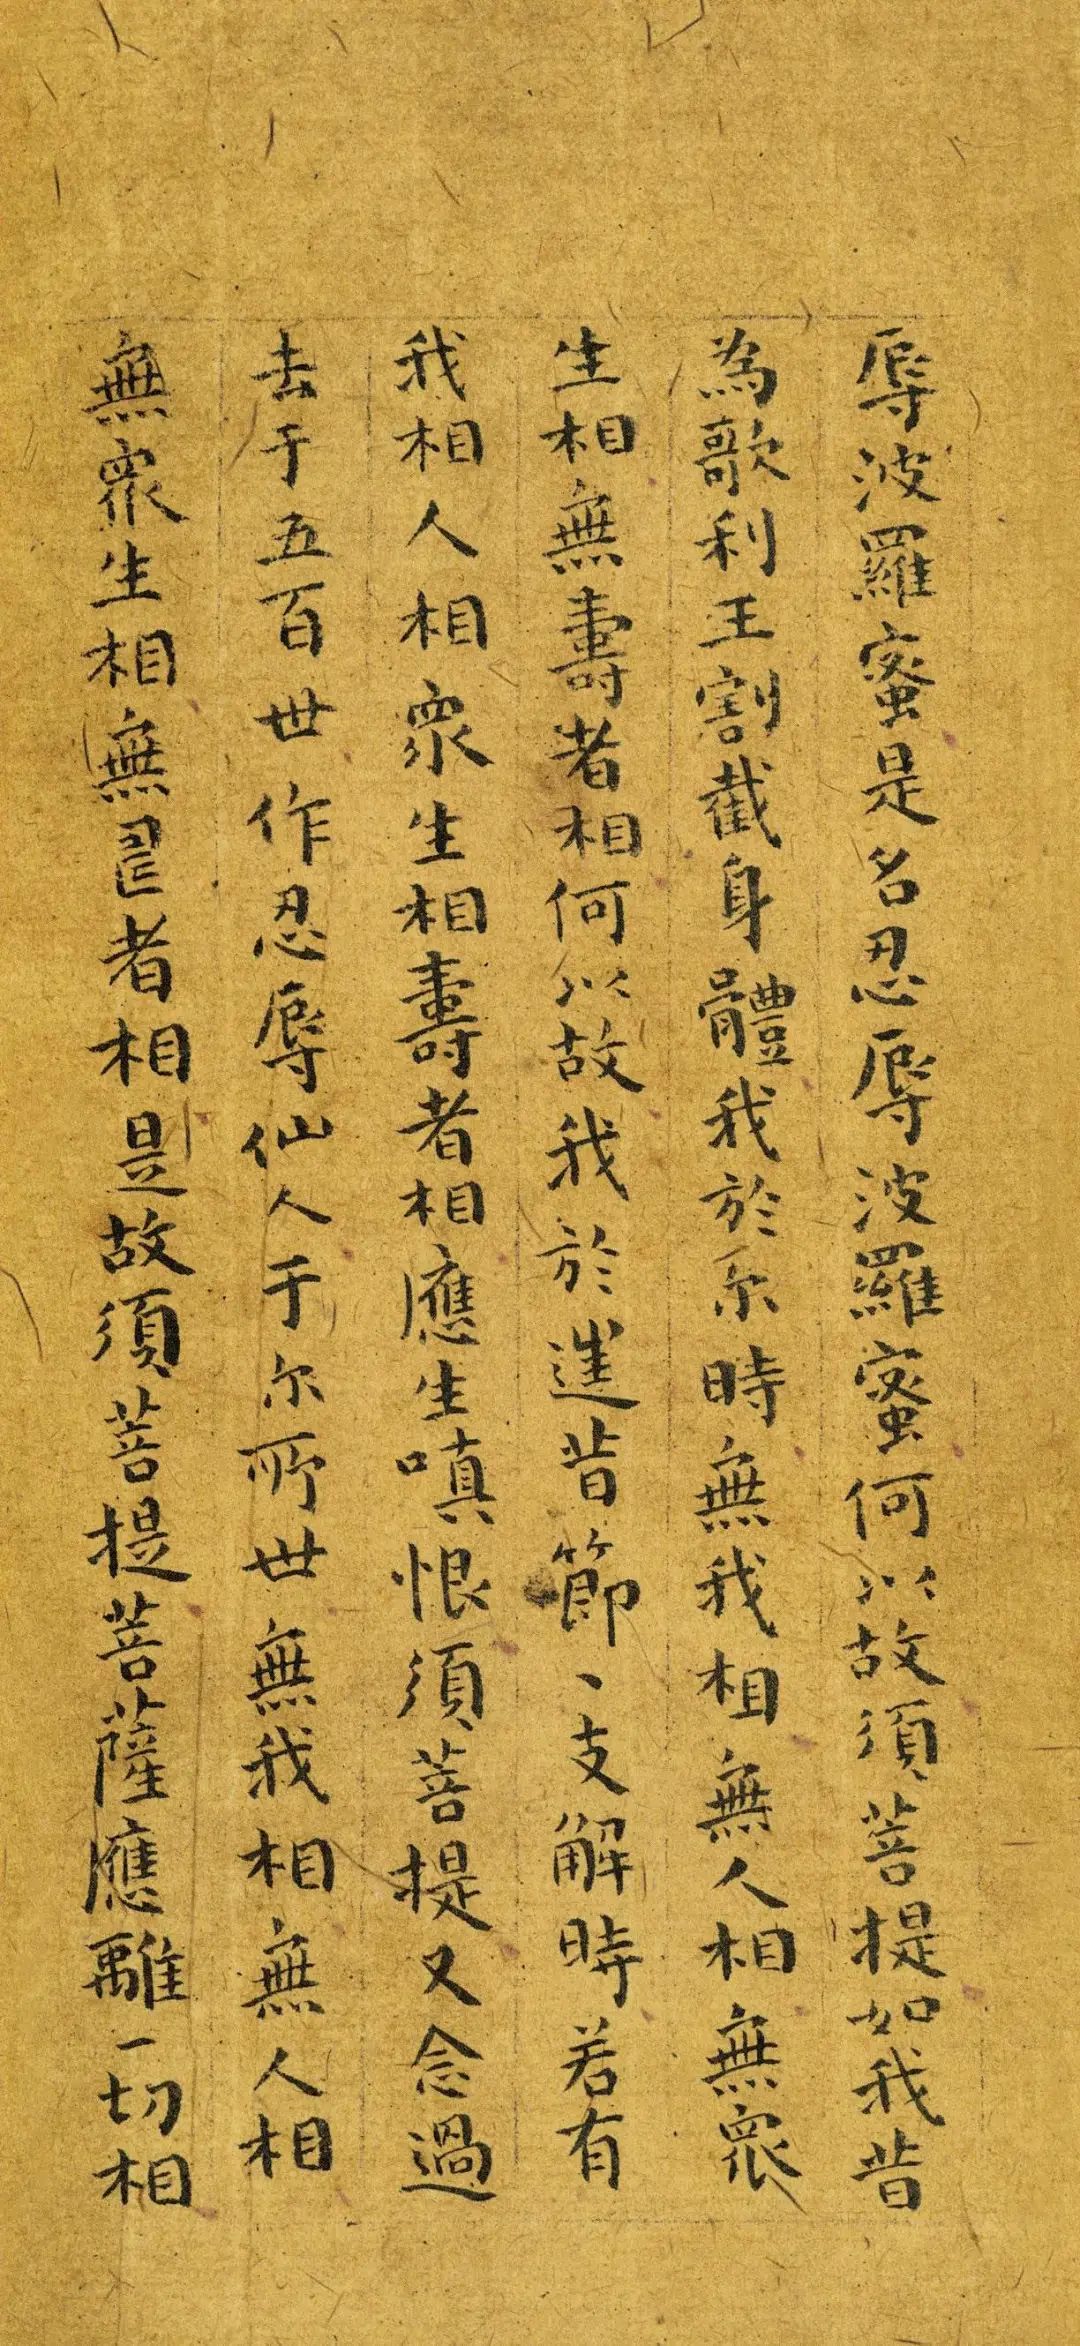 辱波羅蜜是名忍辱波羅蜜何以故須菩提如我昔
為歌利王割截身體我於尒時無我相無人相無衆
生相無壽者相何以故我於進昔節、支解時若有
我相人相衆生相壽者相應生嗔恨須菩提又念過
去于五百世作忍辱仙人于尔所世無我相無人相
無衆生相無者相是故須菩提菩薩應離一切相